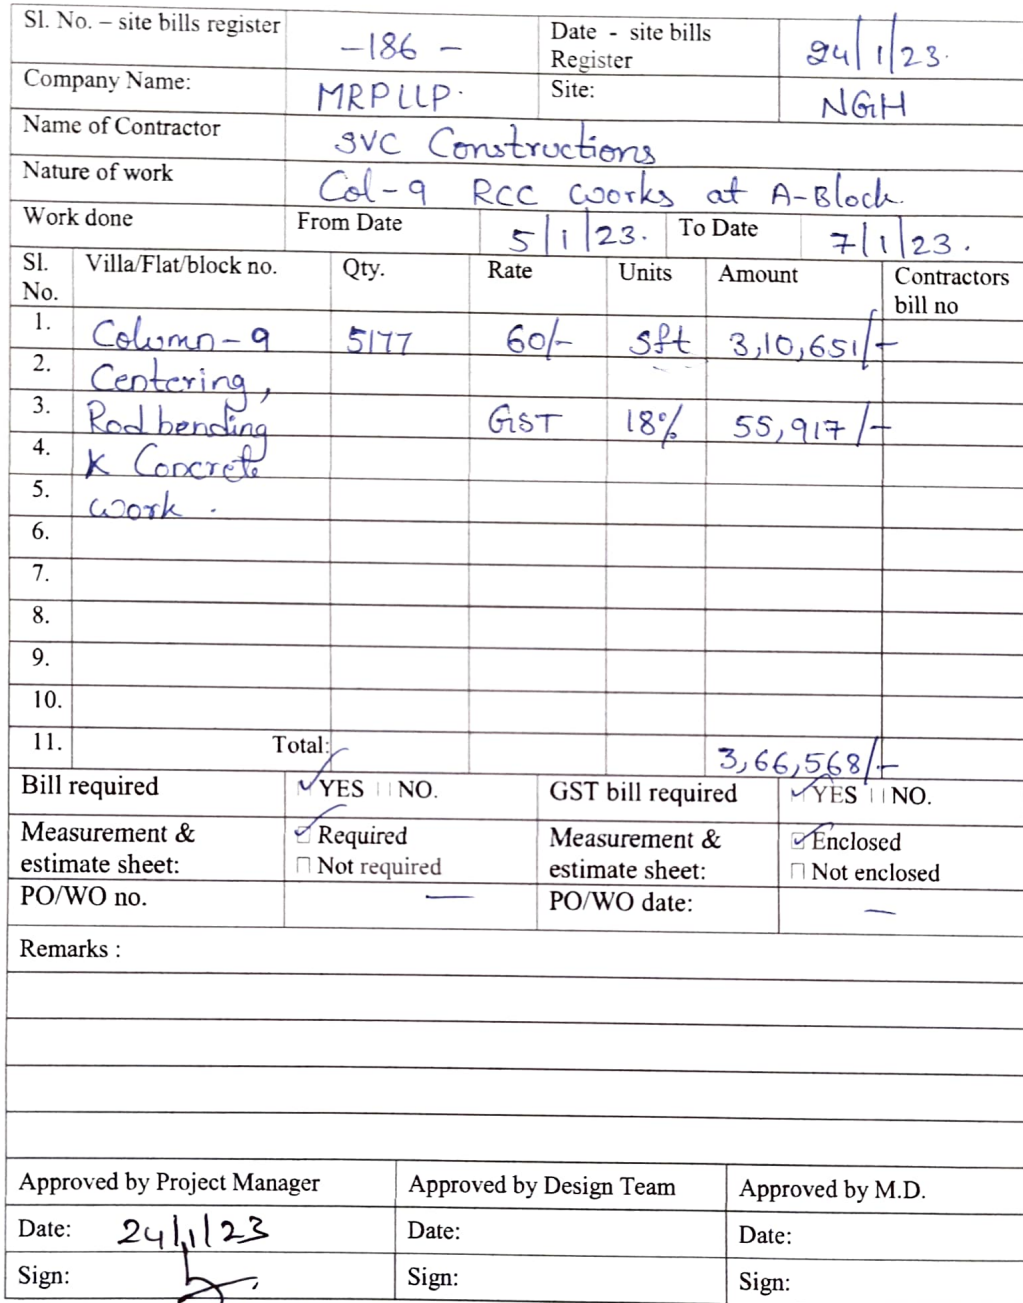 Sl. No. – site bills register -186 - Date - site bills Register 24/1/23.
Company Name: MRPLLP. Site: NGH
Name of Contractor SVC Constructions
Nature of work Col-9 RCC works at A-Block.
Work done From Date 5/1/23. To Date 7/1/23.
Sl. No. Villa/Flat/block no. Qty. Rate Units Amount Contractors bill no
1. Column-9 5177 60/- Sft 3,10,651/-
2. Centering,
3. Rod bending GST 18% 55,917/-
4. & Concrete
5. work.
6.
7.
8.
9.
10.
11. Total: 3,66,568/-
Bill required ✓ YES □ NO. GST bill required ✓ YES □ NO.
Measurement & estimate sheet: ☑ Required □ Not required Measurement & estimate sheet: ☑ Enclosed □ Not enclosed
PO/WO no. — PO/WO date: —
Remarks :
Approved by Project Manager Approved by Design Team Approved by M.D.
Date: 24/1/23 Date: Date:
Sign: Sign: Sign: